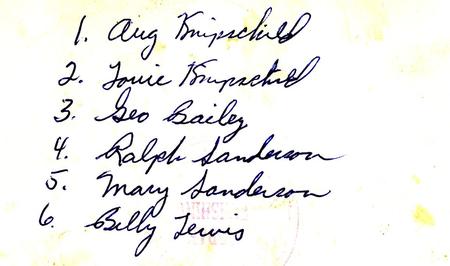 1. Aug Knipschild
2. Louie Knipschild
3. Geo Bailey
4. Ralph Sanderson
5. Mary Sanderson
6. Billy Lewis